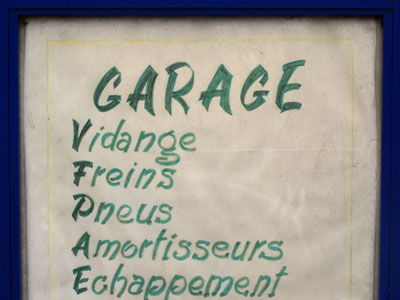 GARAGE
Vidange
Freins
Pneus
Amortisseurs
Echappement